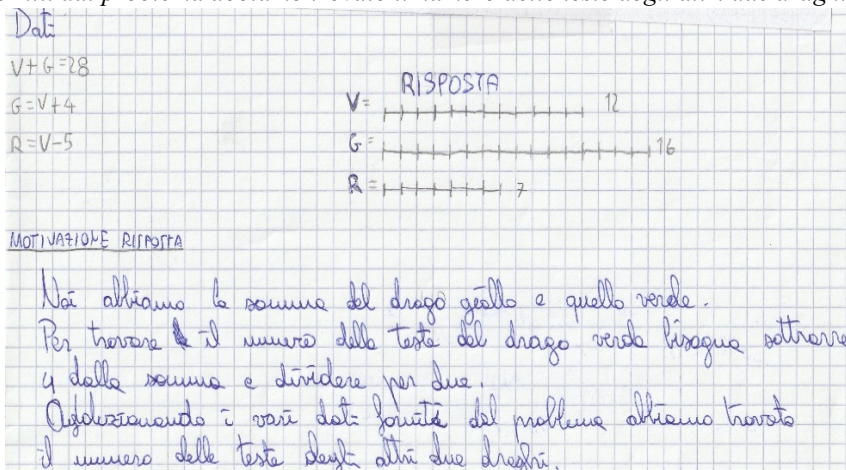 Dati
V+G=28
G=V+4
R=V-5
RISPOSTA
V= 12
G= 16
R= 7
MOTIVAZIONE RISPOSTA
Noi abbiamo la somma del drago giallo e quello verde.
Per trovare il numero delle teste del drago verde bisogna sottrarre
4 dalla somma e dividere per due.
Addizionando i vari dati forniti dal problema abbiamo trovato
il numero delle teste degli altri due draghi.